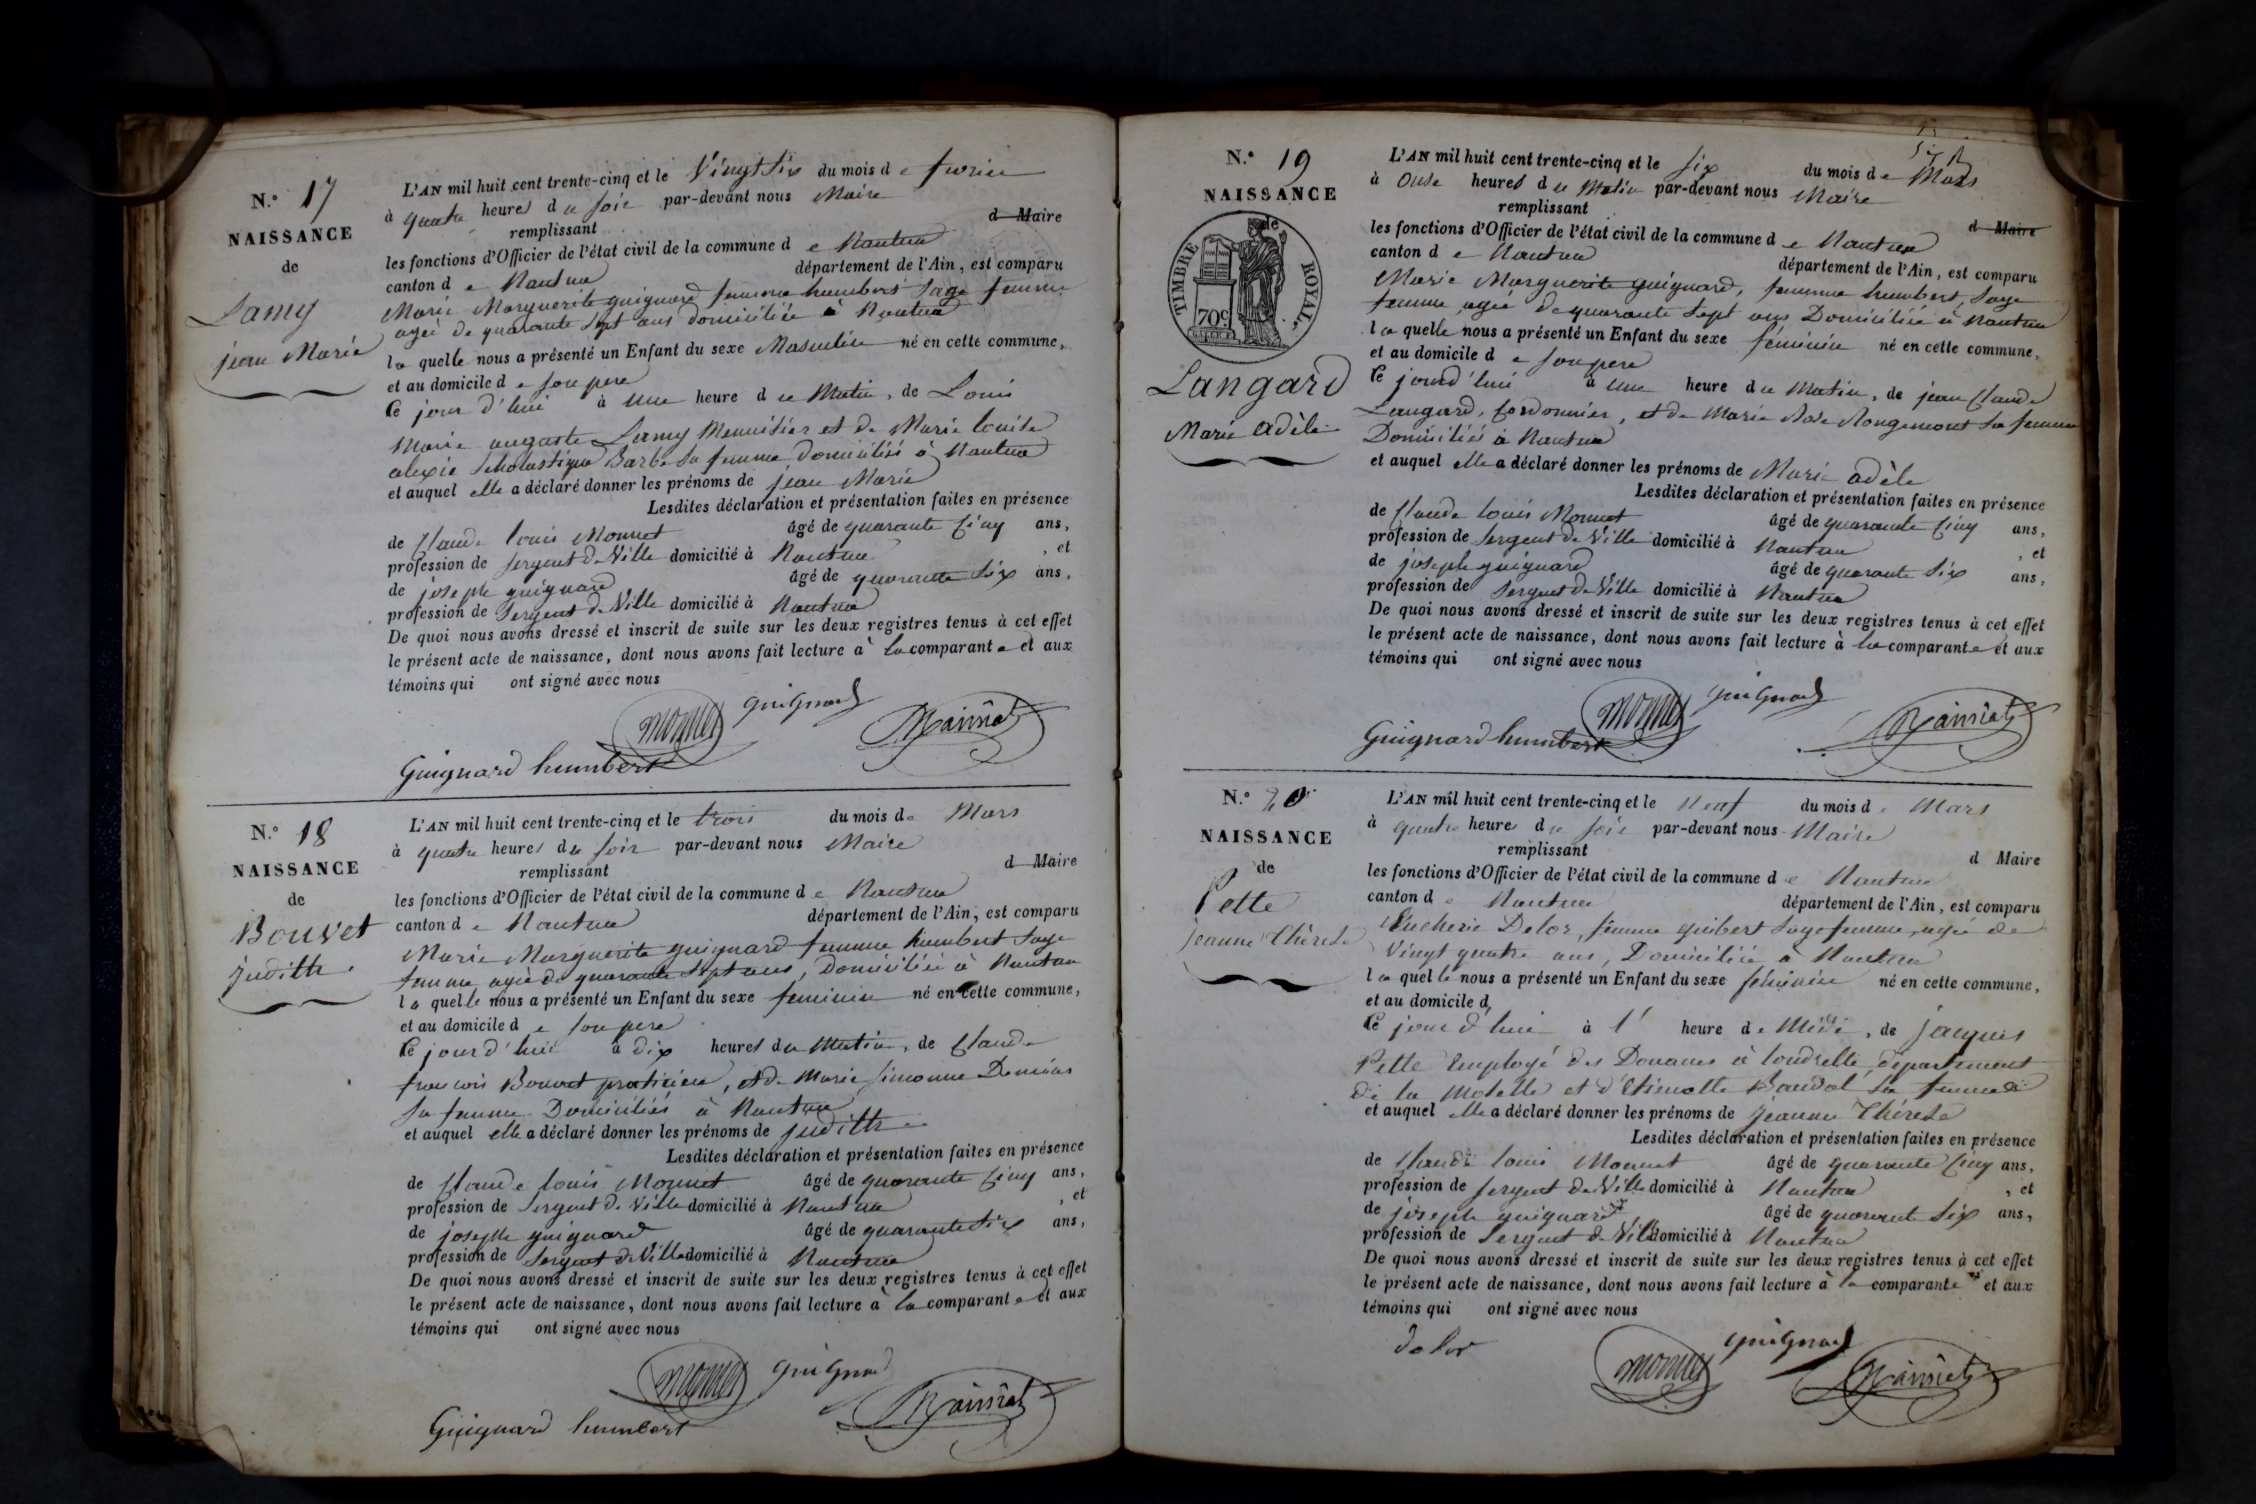 N.° 17
NAISSANCE
de
Lamy
jean Marie
L'AN mil huit cent trente-cinq et le Vingt Six du mois de fevrier
à quatre heures du soir par-devant nous Maire
remplissant d Maire
les fonctions d'Officier de l'état civil de la commune de Nantua
canton de Nantua département de l'Ain, est comparu
Marie Marguerite guignard femme humbert Sage femme
agée de quarante Sept ans domiciliée à Nantua
laquelle nous a présenté un Enfant du sexe Masculin né en cette commune,
et au domicile de son pere
Ce jour d'hui à une heure du Matin, de Louis
Marie auguste Lamy Menuisier et de Marie louise
alexie Scholastique Barbe sa femme domiciliés à Nantua
et auquel elle a déclaré donner les prénoms de jean Marie
Lesdites déclaration et présentation faites en présence
de Claude louis Monnet âgé de quarante Cinq ans,
profession de Sergent de Ville domicilié à Nantua, et
de joseph guignard âgé de quarante Six ans,
profession de Sergent de Ville domicilié à Nantua
De quoi nous avons dressé et inscrit de suite sur les deux registres tenus à cet effet
le présent acte de naissance, dont nous avons fait lecture à la comparante et aux
témoins qui ont signé avec nous
monnet guignard
Guignard humbert
N.° 18
NAISSANCE
de
Bouvet
judith
L'AN mil huit cent trente-cinq et le trois du mois de Mars
à quatre heures du soir par-devant nous Maire
remplissant d Maire
les fonctions d'Officier de l'état civil de la commune de Nantua
canton de Nantua département de l'Ain, est comparu
Marie Marguerite guignard femme humbert Sage
femme agée de quarante Sept ans, Domiciliée à Nantua
laquelle nous a présenté un Enfant du sexe féminin né en cette commune,
et au domicile de son pere
Ce jour d'hui à dix heures du Matin, de Claude
francois Bouvet praticien, et de Marie Simonne
sa femme Domiciliés à Nantua
et auquel elle a déclaré donner les prénoms de judith
Lesdites déclaration et présentation faites en présence
de Claude louis Monnet âgé de quarante Cinq ans,
profession de Sergent de Ville domicilié à Nantua, et
de joseph guignard âgé de quarante Six ans,
profession de Sergent de Ville domicilié à Nantua
De quoi nous avons dressé et inscrit de suite sur les deux registres tenus à cet effet
le présent acte de naissance, dont nous avons fait lecture à la comparante et aux
témoins qui ont signé avec nous
monnet guignard
Guignard humbert
N.° 19
NAISSANCE
de
TIMBRE ROYAL
70c
Langard
Marie adèle
L'AN mil huit cent trente-cinq et le six du mois de Mars
à onse heures du Matin par-devant nous Maire
remplissant d Maire
les fonctions d'Officier de l'état civil de la commune de Nantua
canton de Nantua département de l'Ain, est comparu
Marie Marguerite guignard, femme humbert, Sage
femme agée de quarante Sept ans Domiciliée à Nantua
laquelle nous a présenté un Enfant du sexe féminin né en cette commune,
et au domicile de son pere
Ce jourd'hui à une heure du Matin, de jean Claude
Langard, Cordonnier, et de Marie Rose Rongemont sa femme
Domiciliés à Nantua
et auquel elle a déclaré donner les prénoms de Marie adèle
Lesdites déclaration et présentation faites en présence
de Claude louis Monnet âgé de quarante Cinq ans,
profession de Sergent de Ville domicilié à Nantua, et
de joseph guignard âgé de quarante Six ans,
profession de Sergent de Ville domicilié à Nantua
De quoi nous avons dressé et inscrit de suite sur les deux registres tenus à cet effet
le présent acte de naissance, dont nous avons fait lecture à la comparante et aux
témoins qui ont signé avec nous
monnet guignard
Guignard humbert
N.° 20
NAISSANCE
de
Pette
jeanne Thérese
L'AN mil huit cent trente-cinq et le Neuf du mois de Mars
à quatre heures du soir par-devant nous Maire
remplissant d Maire
les fonctions d'Officier de l'état civil de la commune de Nantua
canton de Nantua département de l'Ain, est comparu
Delor, femme guibert Sage femme, agée de
Vingt quatre ans, Domiciliée à Nantua
laquelle nous a présenté un Enfant du sexe féminin né en cette commune,
et au domicile d
Ce jour d'hui à l' heure de Midi, de jacques
Pette Employé des Douanes à département
de la Moselle et d' sa femme
et auquel elle a déclaré donner les prénoms de jeanne Thérese
Lesdites déclaration et présentation faites en présence
de Claude louis Monnet âgé de quarante Cinq ans,
profession de Sergent de Ville domicilié à Nantua, et
de joseph guignard âgé de quarante Six ans,
profession de Sergent de Ville domicilié à Nantua
De quoi nous avons dressé et inscrit de suite sur les deux registres tenus à cet effet
le présent acte de naissance, dont nous avons fait lecture à la comparante et aux
témoins qui ont signé avec nous
delor monnet guignard